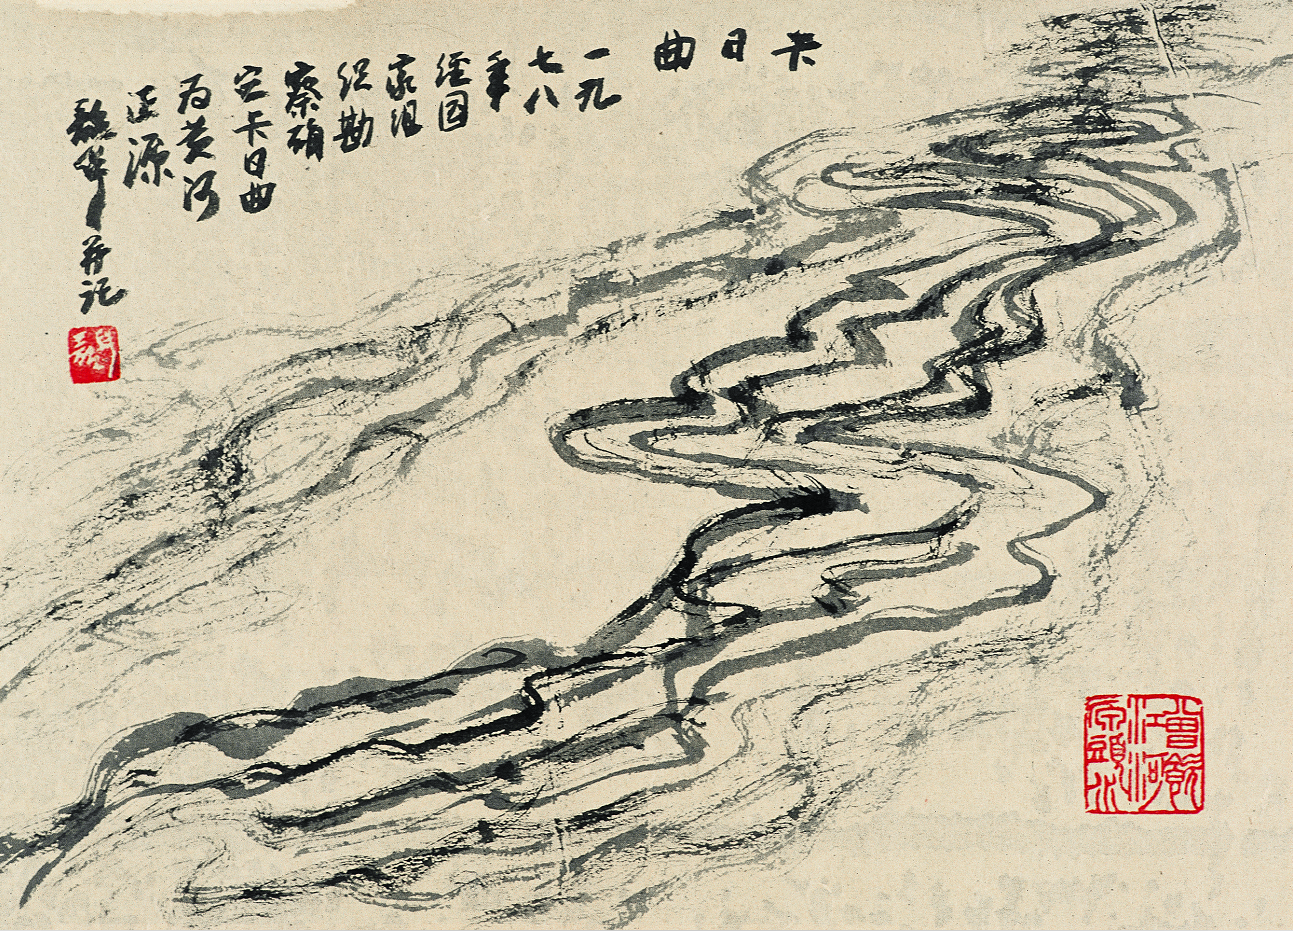 卡日曲
一九
七八
年
经国
家组
织勘
察确
定卡日曲
为黄河
正源
并记
曾飲
江河
原頭水